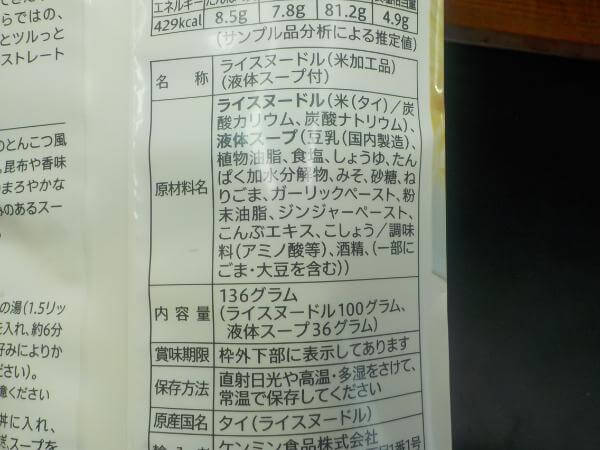 らではの、
とツルっと
ストレート
のとんこつ風
昆布や香味
まろやかな
のあるスー
の湯(1.5リッ
を入れ、約6分
好みによりか
さい)。
意ください
丼に入れ、
スープを
エネルギー
429kcal 8.5g 7.8g 81.2g 4.9g
(サンプル品分析による推定値)
名 称 ライスヌードル(米加工品)
(液体スープ付)
原材料名 ライスヌードル(米(タイ)/炭
酸カリウム、炭酸ナトリウム)、
液体スープ(豆乳(国内製造)、
植物油脂、食塩、しょうゆ、たん
ぱく加水分解物、みそ、砂糖、ね
りごま、ガーリックペースト、粉
末油脂、ジンジャーペースト、
こんぶエキス、こしょう/調味
料(アミノ酸等)、酒精、(一部に
ごま・大豆を含む))
内 容 量 136グラム
(ライスヌードル100グラム、
液体スープ36グラム)
賞味期限 枠外下部に表示してあります
保存方法 直射日光や高温・多湿をさけて、
常温で保存してください
原産国名 タイ(ライスヌードル)
ケンミン食品株式会社